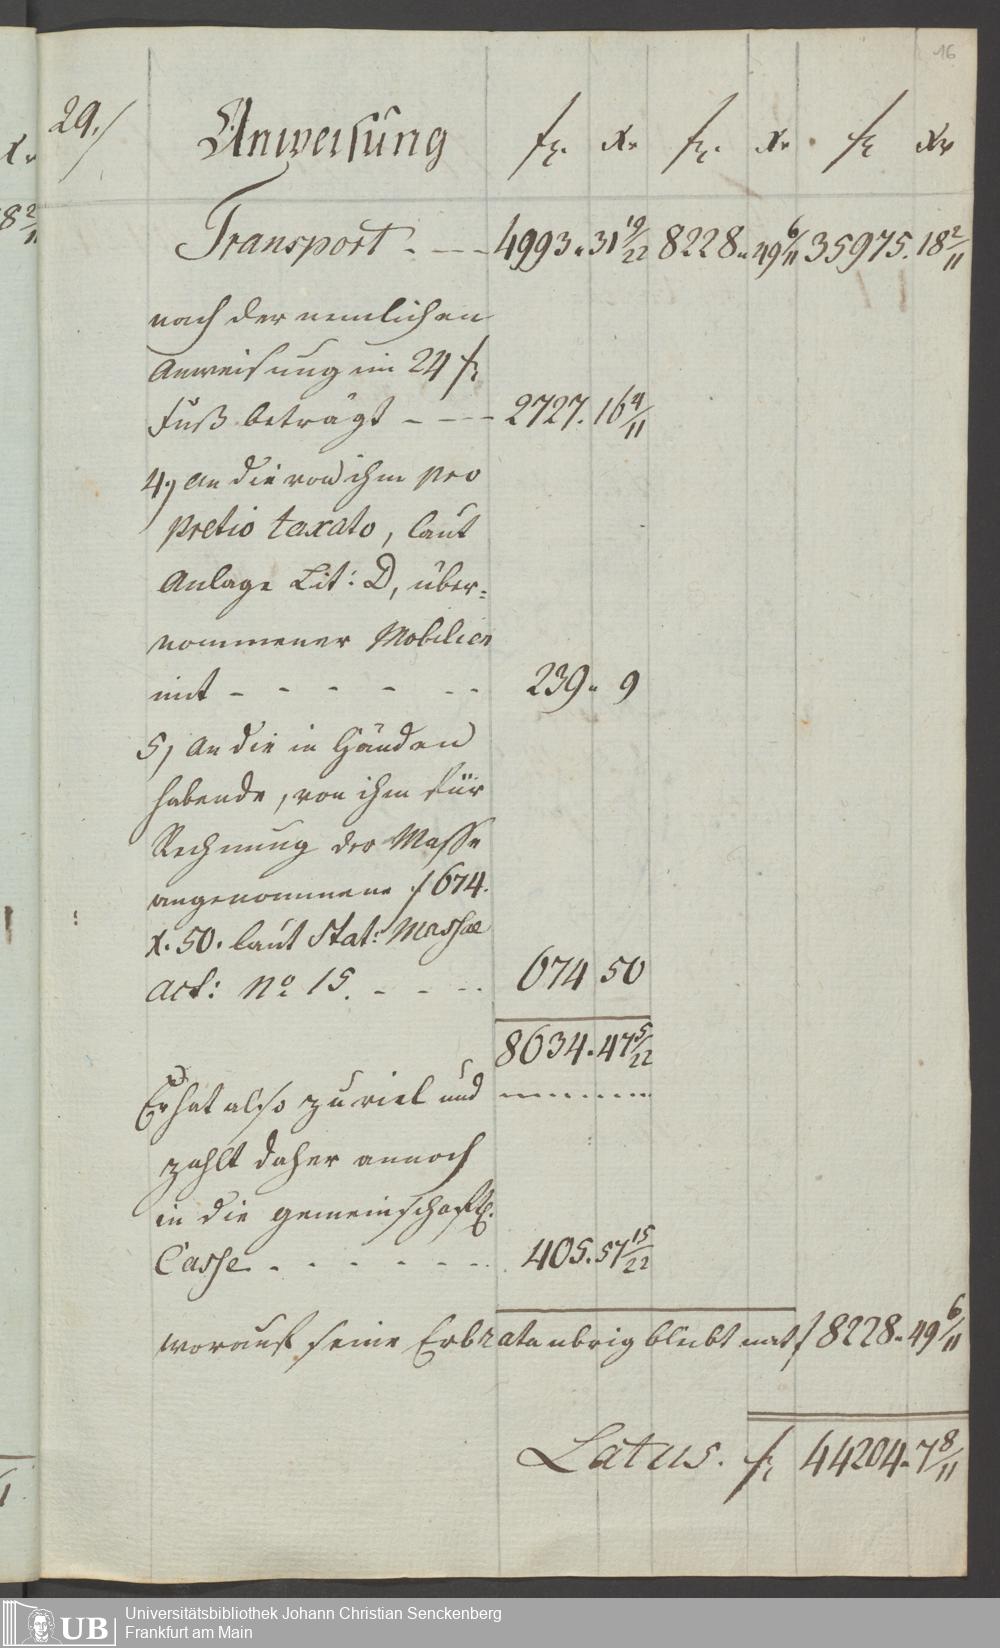 16
29./ Anweisung fl. Xr fl. Xr. fl Xr
Transport - - - 4993. 31 19/22 8228. 49 6/11 35975. 18 2/11
nach der nemlichen
Anweisung im 24 fl
Fuß beträgt - - - 2727. 16 4/11
4) An die von ihm pro
pretio taxato, laut
Anlage Lit: D, über=
nommener Mobilien
mit - - - - - - 239. 9
5) An die in Händen
habende, von ihm für
Rechnung der Masse
angenommene f 674.
X. 50. laut Stat: Massae
act: No 15. - - - - 674 50
8634. 47 5/22
Er hat also zu viel und
zahlt daher annoch
in die gemeinschaftl.
Casse - - - - - - 405. 57 15/22
worauf seine Erbrata übrig bleibt mit f 8228. 49 6/11
Latus. fl 44204. 7 8/11
UB Universitätsbibliothek Johann Christian Senckenberg
Frankfurt am Main